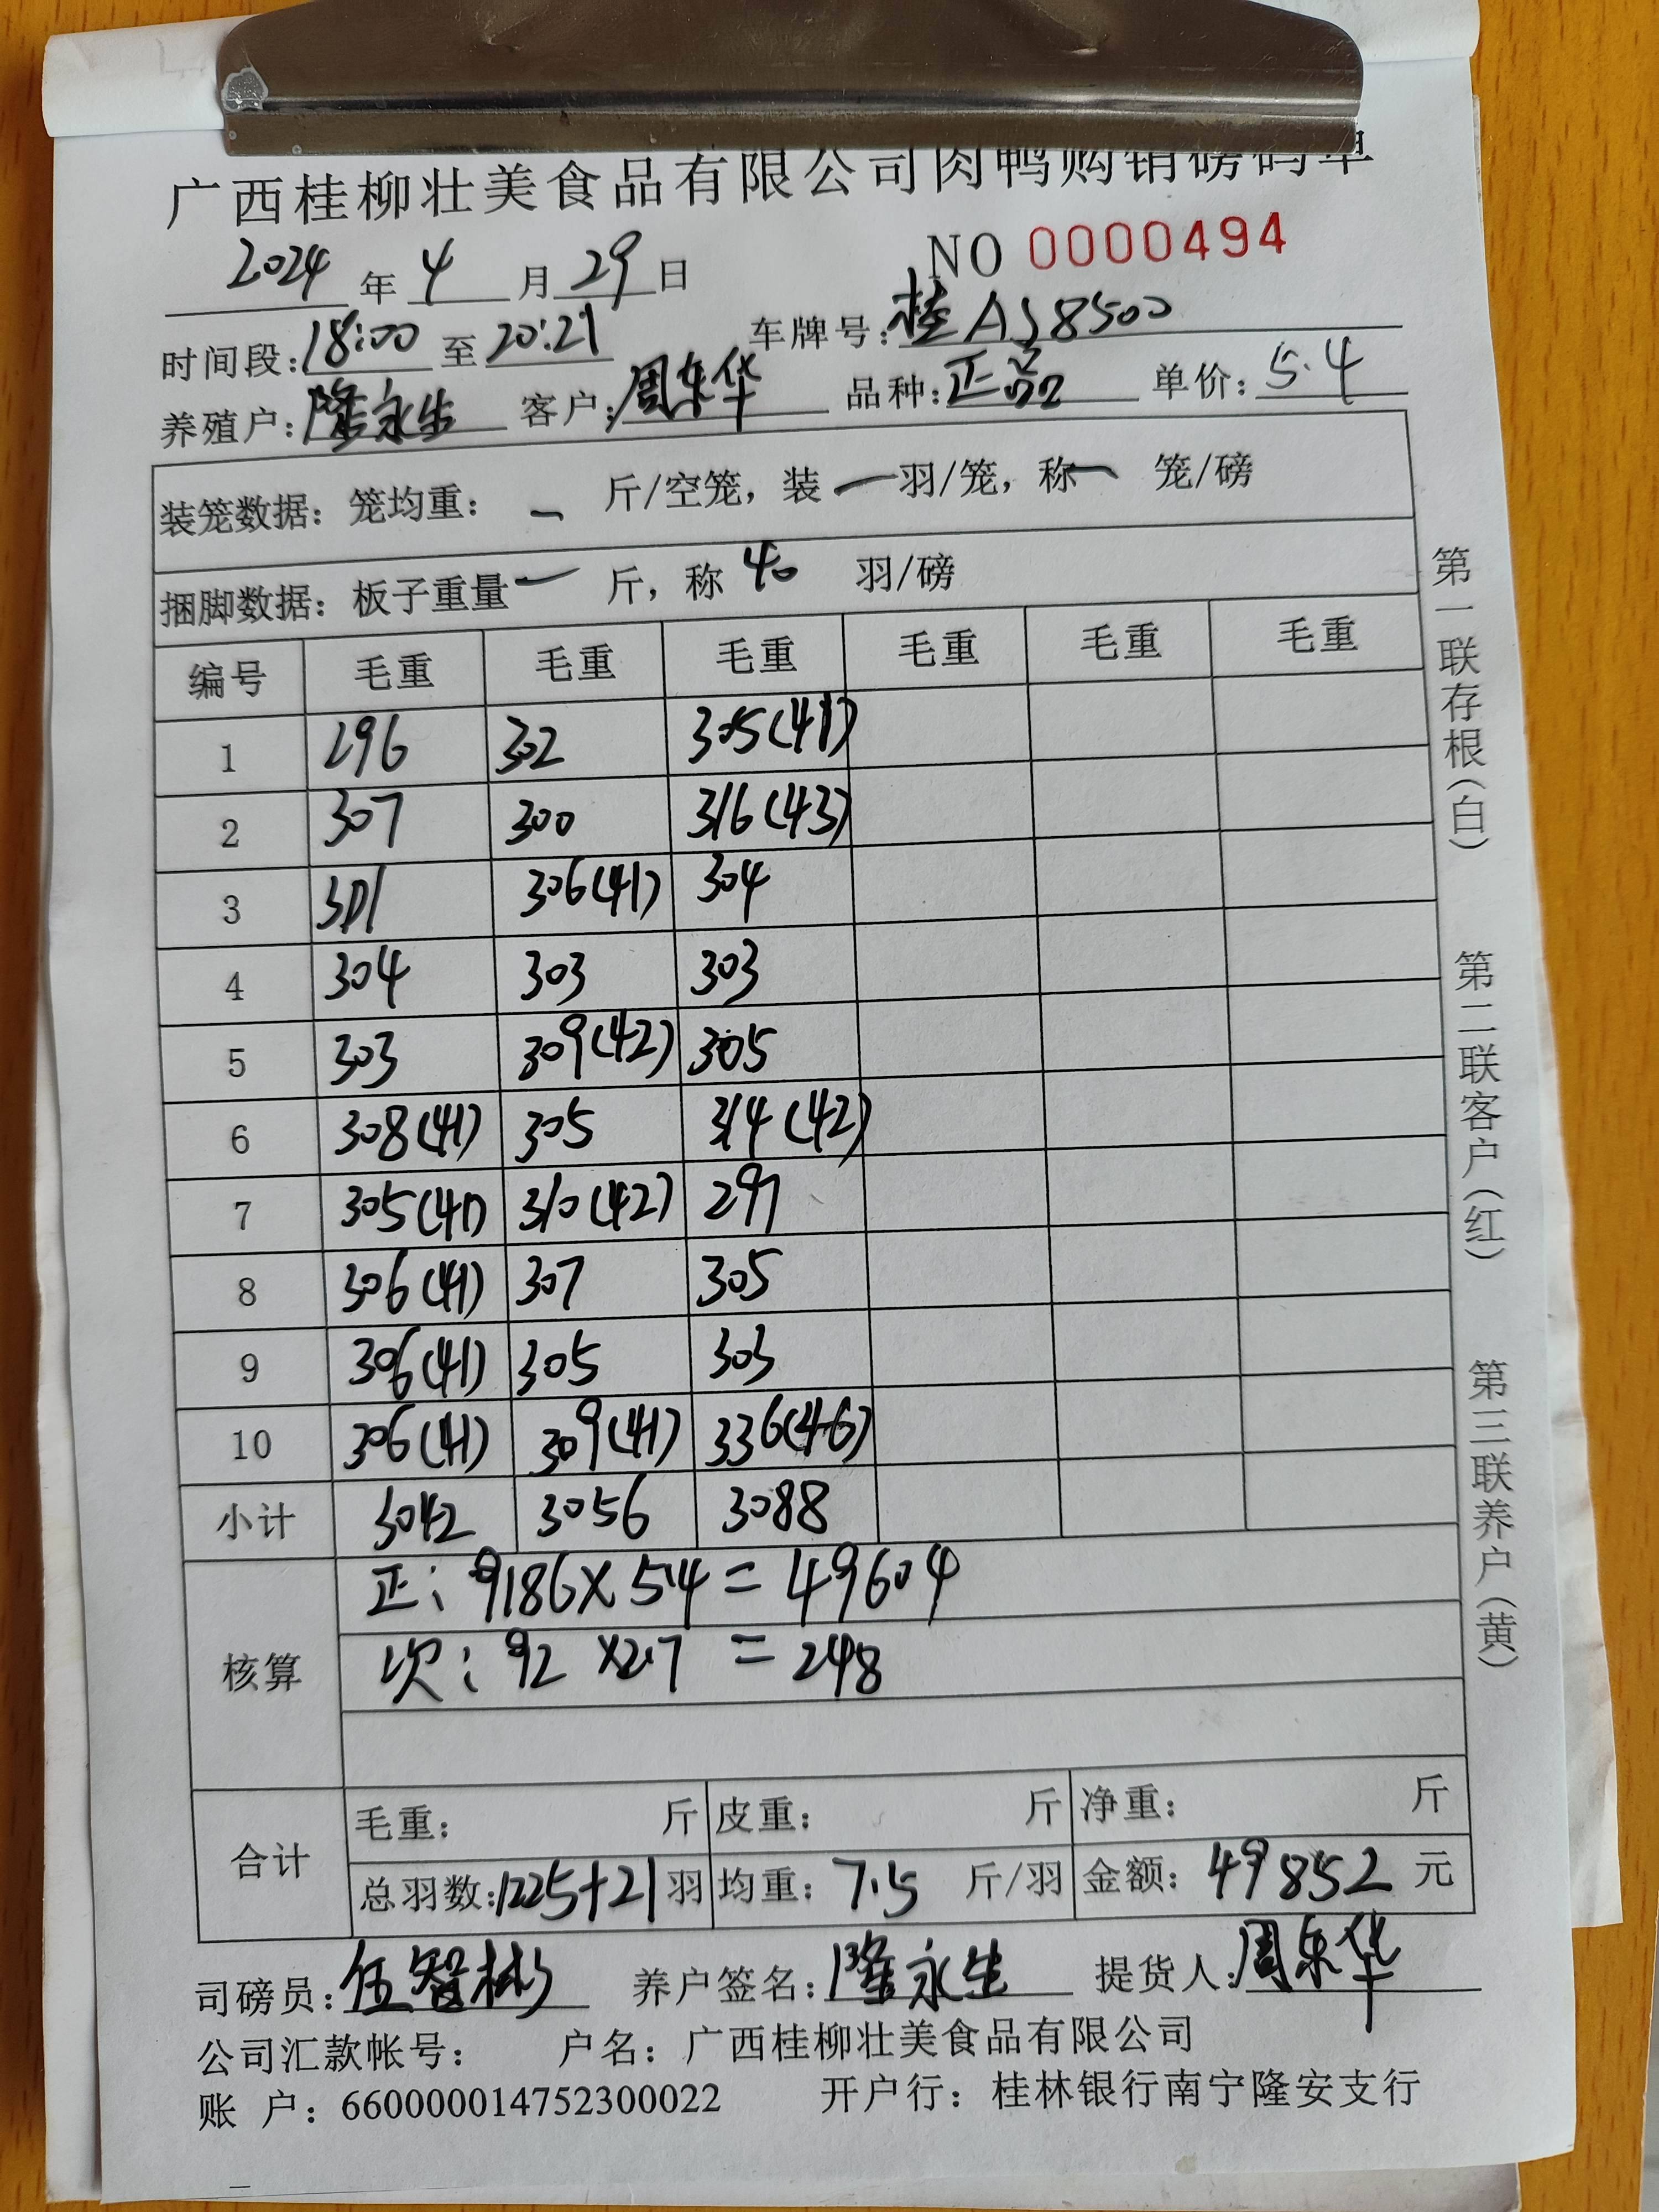 广西桂柳壮美食品有限公司肉鸭购销磅码单
2024 年 4 月 29 日 NO 0000494
时间段:18:00 至 20:21 车牌号:桂AJ8500
养殖户:隆永生 客户:周东华 品种:正品 单价:5.4
装笼数据: 笼均重: - 斤/空笼, 装 一 羽/笼, 称 一 笼/磅
捆脚数据: 板子重量 一 斤, 称 40 羽/磅
编号 毛重 毛重 毛重 毛重 毛重 毛重
1 296 302 305(41)
2 307 300 316(43)
3 301 306(41) 304
4 304 303 303
5 303 309(42) 305
6 308(41) 305 314(42)
7 305(41) 310(42) 297
8 306(41) 307 305
9 306(41) 305 303
10 306(41) 309(41) 336(46)
小计 3042 3056 3088
核算
正: 9186×5.4=49604
次: 92×2.7=248
合计
毛重: 斤 皮重: 斤 净重: 斤
总羽数:1225+21羽 均重: 7.5 斤/羽 金额: 49852 元
司磅员:伍智彬 养户签名:隆永生 提货人:周东华
公司汇款帐号: 户名: 广西桂柳壮美食品有限公司
账 户: 660000014752300022 开户行: 桂林银行南宁隆安支行
第一联存根(白)
第二联客户(红)
第三联养户(黄)